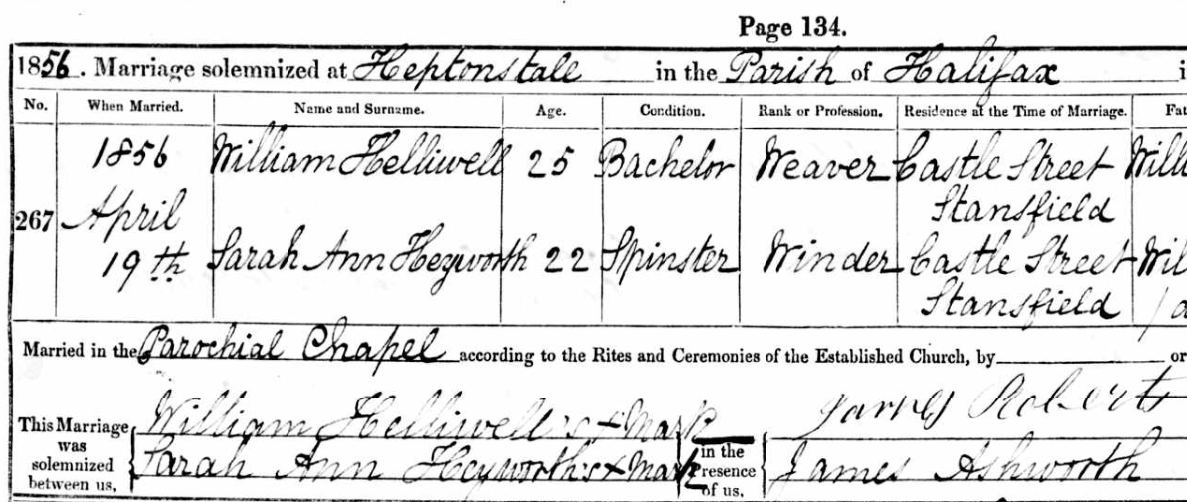 Page 134.
1856. Marriage solemnized at Heptonstall in the Parish of Halifax i
No. When Married. Name and Surname. Age. Condition. Rank or Profession. Residence at the Time of Marriage. Fat
1856 William Helliwell 25 Bachelor Weaver Castle Street Willi
Stansfield
267 April
19th Sarah Ann Heyworth 22 Spinster Winder Castle Street Wil
Stansfield
Married in the Parochial Chapel according to the Rites and Ceremonies of the Established Church, by or
This Marriage William Helliwell's + Mark James Roberts
was in the
solemnized Sarah Ann Heyworth's + Mark Presence James Ashworth
between us, of us,